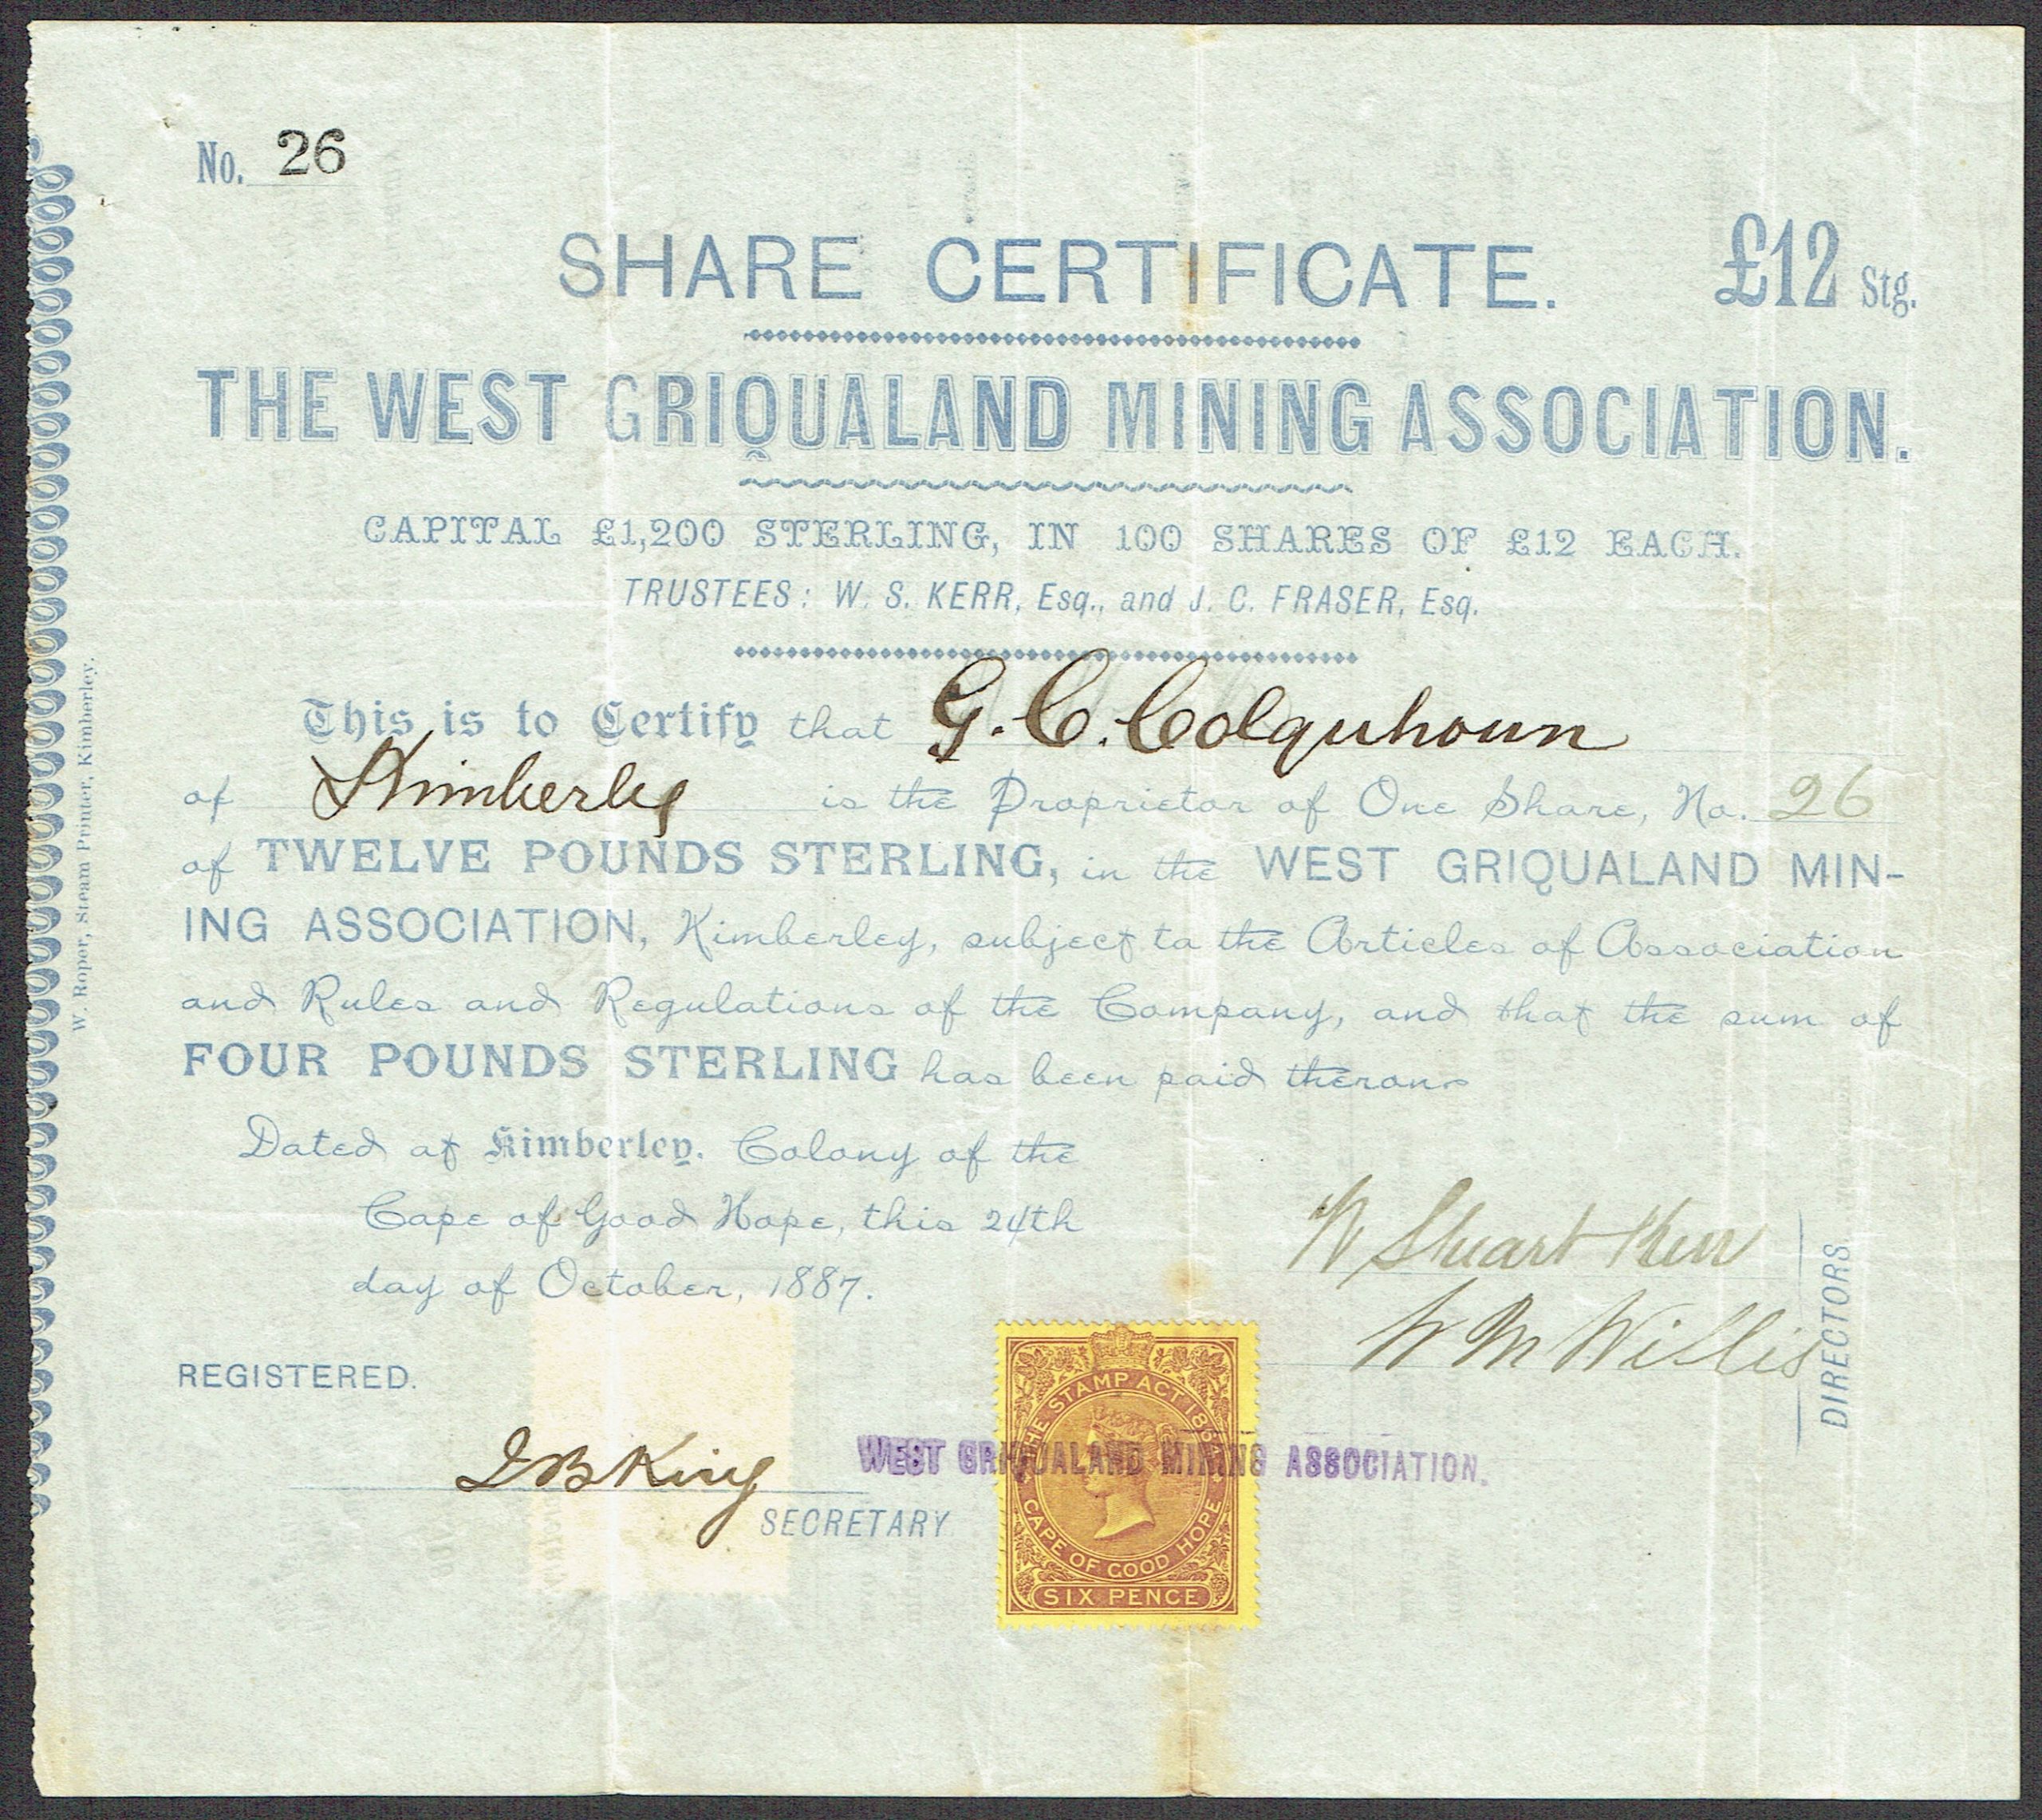 No. 26
SHARE CERTIFICATE. £12 Stg.
THE WEST GRIQUALAND MINING ASSOCIATION.
CAPITAL £1,200 STERLING, IN 100 SHARES OF £12 EACH.
TRUSTEES: W. S. KERR, Esq., and J. C. FRASER, Esq.
This is to Certify that G. C. Colquhoun
of Kimberley is the Proprietor of One Share, No. 26
of TWELVE POUNDS STERLING, in the WEST GRIQUALAND MIN-
ING ASSOCIATION, Kimberley, subject to the Articles of Association
and Rules and Regulations of the Company, and that the sum of
FOUR POUNDS STERLING has been paid theron.
Dated at Kimberley. Colony of the
Cape of Good Hope, this 24th
day of October, 1887.
W Stuart Kerr
W M Willis
DIRECTORS.
REGISTERED.
J B King
SECRETARY
WEST GRIQUALAND MINING ASSOCIATION.
THE STAMP ACT
CAPE OF GOOD HOPE
SIX PENCE
W. Roper, Steam Printer, Kimberley.